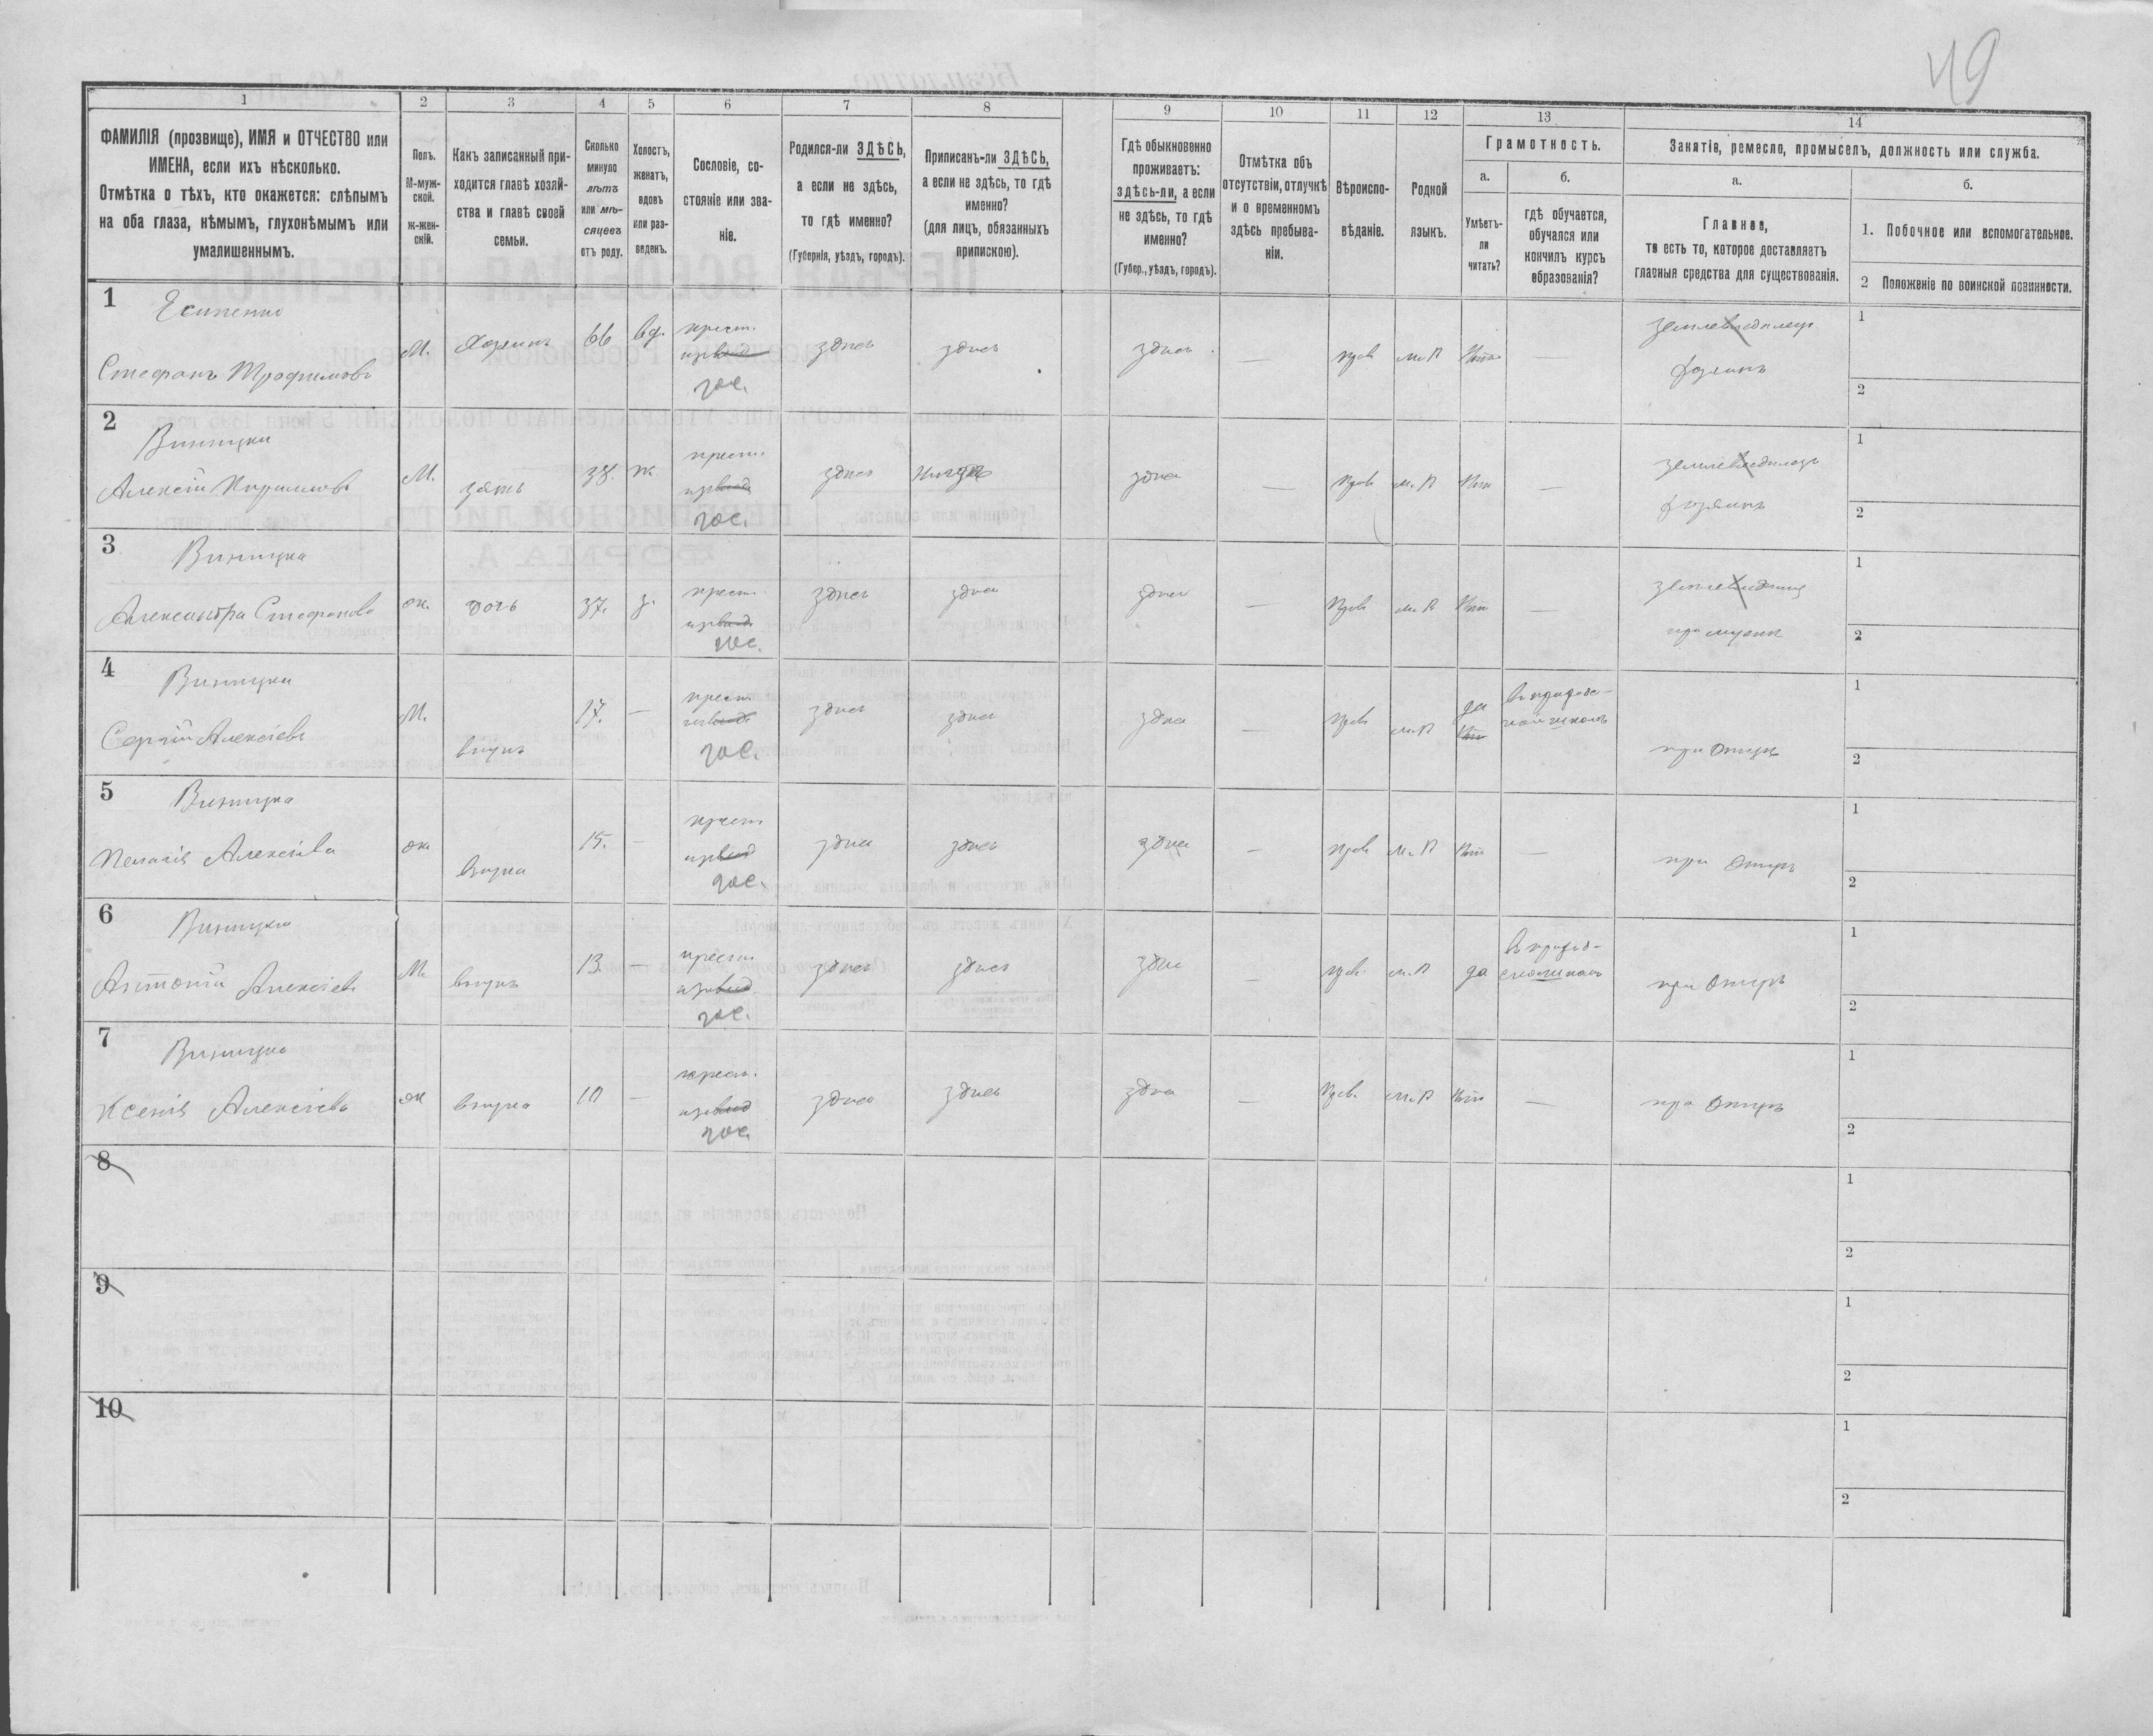 49
1
2
3
4
5
6
7
8
9
10
11
12
13
14
ФАМИЛІЯ (прозвище), ИМЯ и ОТЧЕСТВО или
ИМЕНА, если ихъ нѣсколько.
Отмѣтка о тѣхъ, кто окажется: слѣпымъ
на оба глаза, нѣмымъ, глухонѣмымъ или
умалишеннымъ.
Полъ.
М-муж-
ской.
ж-жен-
скій.
Какъ записанный при-
ходится главѣ хозяй-
ства и главѣ своей
семьи.
Сколько
минуло
лѣтъ
или мѣ-
сяцевъ
отъ роду.
Холостъ,
женатъ,
вдовъ
или раз-
веденъ.
Сословіе, со-
стояніе или зва-
ніе.
Родился-ли ЗДѢСЬ,
а если не здѣсь,
то гдѣ именно?
(Губернія, уѣздъ, городъ).
Приписанъ-ли ЗДѢСЬ,
а если не здѣсь, то гдѣ
именно?
(для лицъ, обязанныхъ
припискою).
Гдѣ обыкновенно
проживаетъ:
здѣсь-ли, а если
не здѣсь, то гдѣ
именно?
(Губер., уѣздъ, городъ).
Отмѣтка объ
отсутствіи, отлучкѣ
и о временномъ
здѣсь пребыва-
ніи.
Вѣроиспо-
вѣданіе.
Родной
языкъ.
Грамотность.
а.
Умѣетъ-
ли
читать?
б.
гдѣ обучается,
обучался или
кончилъ курсъ
образованія?
Занятіе, ремесло, промыселъ, должность или служба.
а.
Главное,
то есть то, которое доставляетъ
главныя средства для существованія.
б.
1. Побочное или вспомогательное.
2 Положеніе по воинской повинности.
1
Есипенко
Стефанъ Трофимовъ
М.
Хозяинъ
66
вд.
крест.
гос.
здѣсь
здѣсь
здѣсь
—
прав
м. р
нѣт
—
землевладелец
хозяинъ
1
2
2
Виницки
Алексій Кириллов
М.
зять
38.
ж
крест.
гос.
здѣсь
здѣсь
—
прав
м. р
нѣт
—
землевладелец
хозяинъ
1
2
3
Виницка
Александра Стефанова
ж.
дочь
37.
з.
крест.
гос.
здѣсь
здѣсь
здѣсь
—
прав
м. р
нѣт
—
при мужѣ
1
2
4
Виницки
Сергій Алексіевъ
М.
внукъ
17.
—
крест.
гос.
здѣсь
здѣсь
здѣсь
—
прав
м. р
да
нѣт
в приходс-
кой школѣ
при отцѣ
1
2
5
Виницка
Пелагія Алексіева
ж
внука
15.
—
крест.
гос.
здѣсь
здѣсь
здѣсь
—
прав
м. р
нѣт
—
при отцѣ
1
2
6
Виницки
Антоній Алексіев
М.
внукъ
13.
—
крест.
гос.
здѣсь
здѣсь
здѣсь
—
прав.
м. р
да
в приход-
ской школѣ
при отцѣ
1
2
7
Виницка
Ксенія Алексіева
ж
внука
10
—
крест.
гос.
здѣсь
здѣсь
здѣсь
—
прав.
м. р
нѣт
—
при отцѣ
1
2
8
1
2
9
1
2
10
1
2